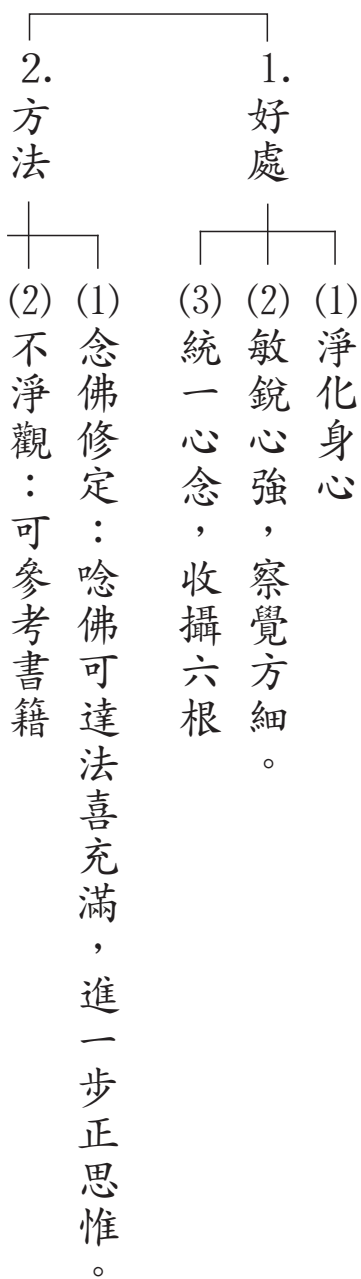 1.好處
(1)淨化身心
(2)敏銳心強，察覺方細。
(3)統一心念，收攝六根
2.方法
(1)念佛修定：唸佛可達法喜充滿，進一步正思惟。
(2)不淨觀：可參考書籍